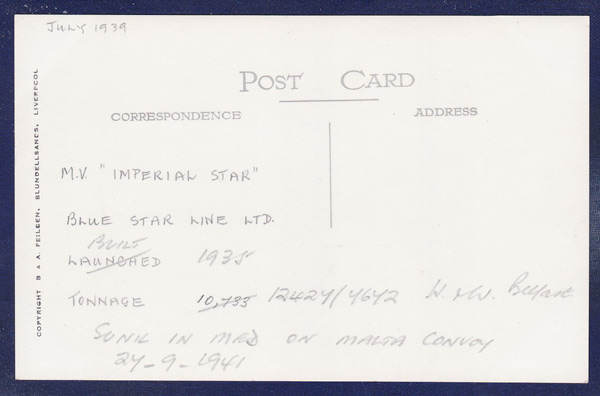 JULY 1939
POST CARD
CORRESPONDENCE
ADDRESS
M.V. "IMPERIAL STAR"
BLUE STAR LINE LTD.
BUILT
LAUNCHED 1935
TONNAGE 10,733 12427/7642 H. & W. Belfast
SUNK IN MED ON MALTA CONVOY
27-9-1941
COPYRIGHT B & A. FEILDEN, BLUNDELLSANDS, LIVERPOOL